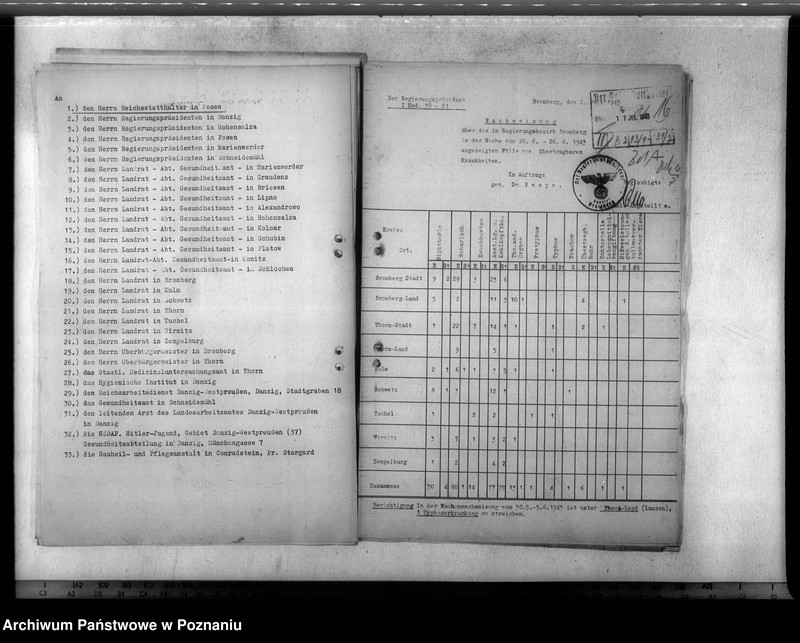 An
1.) den Herrn Reichsstatthalter in Posen
2.) den Herrn Regierungspräsidenten in Danzig
3.) den Herrn Regierungspräsidenten in Hohensalza
4.) den Herrn Regierungspräsidenten in Posen
5.) den Herrn Regierungspräsidenten in Marienwerder
6.) den Herrn Regierungspräsidenten in Schneidemühl
7.) den Herrn Landrat - Abt. Gesundheitsamt - in Marienwerder
8.) den Herrn Landrat - Abt. Gesundheitsamt - in Graudenz
9.) den Herrn Landrat - Abt. Gesundheitsamt - in Briesen
10.) den Herrn Landrat - Abt. Gesundheitsamt - in Lipno
11.) den Herrn Landrat - Abt. Gesundheitsamt - in Alexandrowo
12.) den Herrn Landrat - Abt. Gesundheitsamt - in Hohensalza
13.) den Herrn Landrat - Abt. Gesundheitsamt - in Kolmar
14.) den Herrn Landrat - Abt. Gesundheitsamt - in Schubin
15.) den Herrn Landrat - Abt. Gesundheitsamt - in Flatow
16.) den Herrn Landrat-Abt. Gesundheitsamt-in Konitz
17.) den Herrn Landrat - Abt. Gesundheitsamt - in Schlochau
18.) den Herrn Landrat in Bromberg
19.) den Herrn Landrat in Kulm
20.) den Herrn Landrat in Schwetz
21.) den Herrn Landrat in Thorn
22.) den Herrn Landrat in Tuchel
23.) den Herrn Landrat in Wirsitz
24.) den Herrn Landrat in Zempelburg
25.) den Herrn Oberbürgermeister in Bromberg
26.) den Herrn Oberbürgermeister in Thorn
27.) das Staatl. Medizinaluntersuchungsamt in Thorn
28.) das Hygienische Institut in Danzig
29.) den Reichsarbeitsdienst Danzig-Westpreußen, Danzig, Stadtgraben 18
30.) das Gesundheitsamt in Schneidemühl
31.) den leitenden Arzt des Landesarbeitsamtes Danzig-Westpreußen
in Danzig
32.) die NSDAP. Hitler-Jugend, Gebiet Danzig-Westpreußen (37)
Gesundheitsabteilung in Danzig, Münchengasse 7
33.) die Gauheil- und Pflegeanstalt in Conradstein, Pr. Stargard
Der Regierungspräsident
I Med. 30 - 01
Bromberg, den 1943
Nachweisung
über die in Regierungsbezirk Bromberg
in der Woche vom 20.6. - 26.6. 1943
angezeigten Fälle von übertragbaren
Krankheiten.
Im Auftrag:
gez. Dr. Knape.
Kreis:
Ort.
Diphtherie
Scharlach
Keuchhusten
Paratyphus
Typhus
Trachom
Übertragb. Ruhr
Bromberg Stadt 9 2 29 3 23 6
Bromberg-Land 5 2 11 3 10 1 4 1
Thorn-Stadt 1 22 7 14 1 1 1 2 1
Thorn-Land 9 5 1
Kulm 2 1 6 1 1 7 5 1 1
Schwetz 8 1 1 12 1 1
Tuchel 1 2 2 1 1
Wirsitz 3 7 1 3 2 1
Zempelburg 1 2 4 2
Zusammen: 30 4 80 1 14 77 20 13 1 1 4 1 6 1 1
Berichtigung In der Wochennachweisung vom 30.5.-5.6.1943 ist unter Thorn-Land (Lanzen),
1 Typhuserkrankung zu streichen.
Archiwum Państwowe w Poznaniu